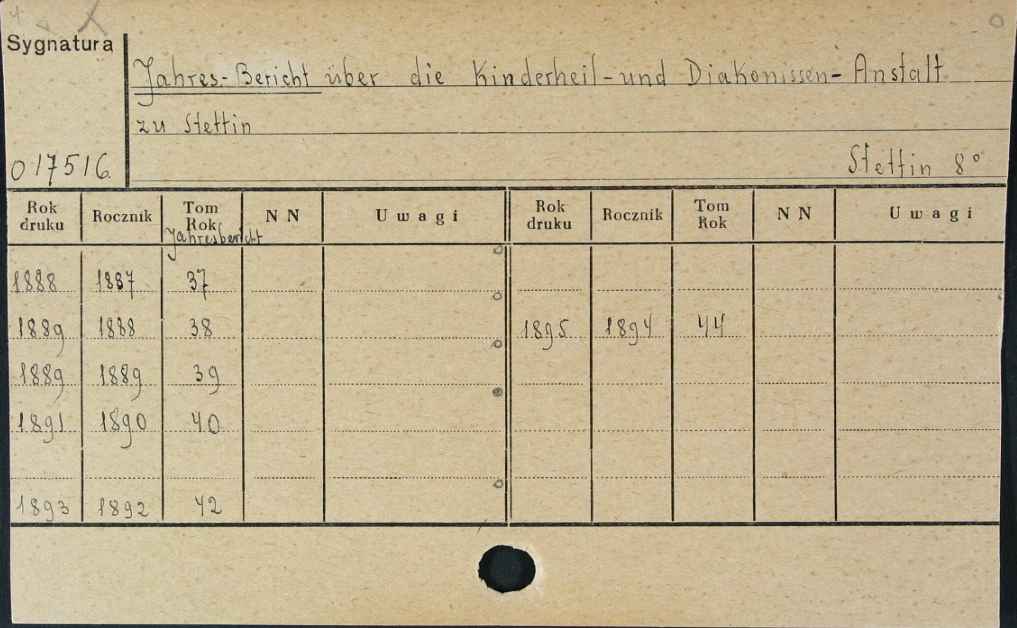 Sygnatura
Jahres-Bericht über die Kinderheil-und Diakonissen-Anstalt
zu Stettin
017516.
Stettin 8°
Rok druku Rocznik Tom Rok NN Uwagi Rok druku Rocznik Tom Rok NN Uwagi
Jahresbericht
1888 1887 37
1889 1888 38 1895 1894 44
1889 1889 39
1891 1890 40
1893 1892 42